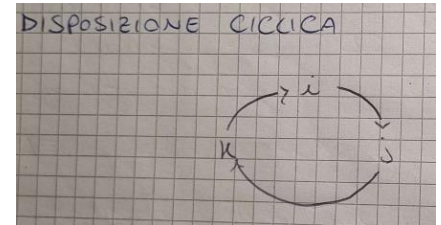 DISPOSIZIONE CICLICA
i
K
j